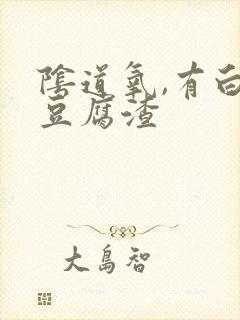 陰道氧,有白
豆腐渣
大島智